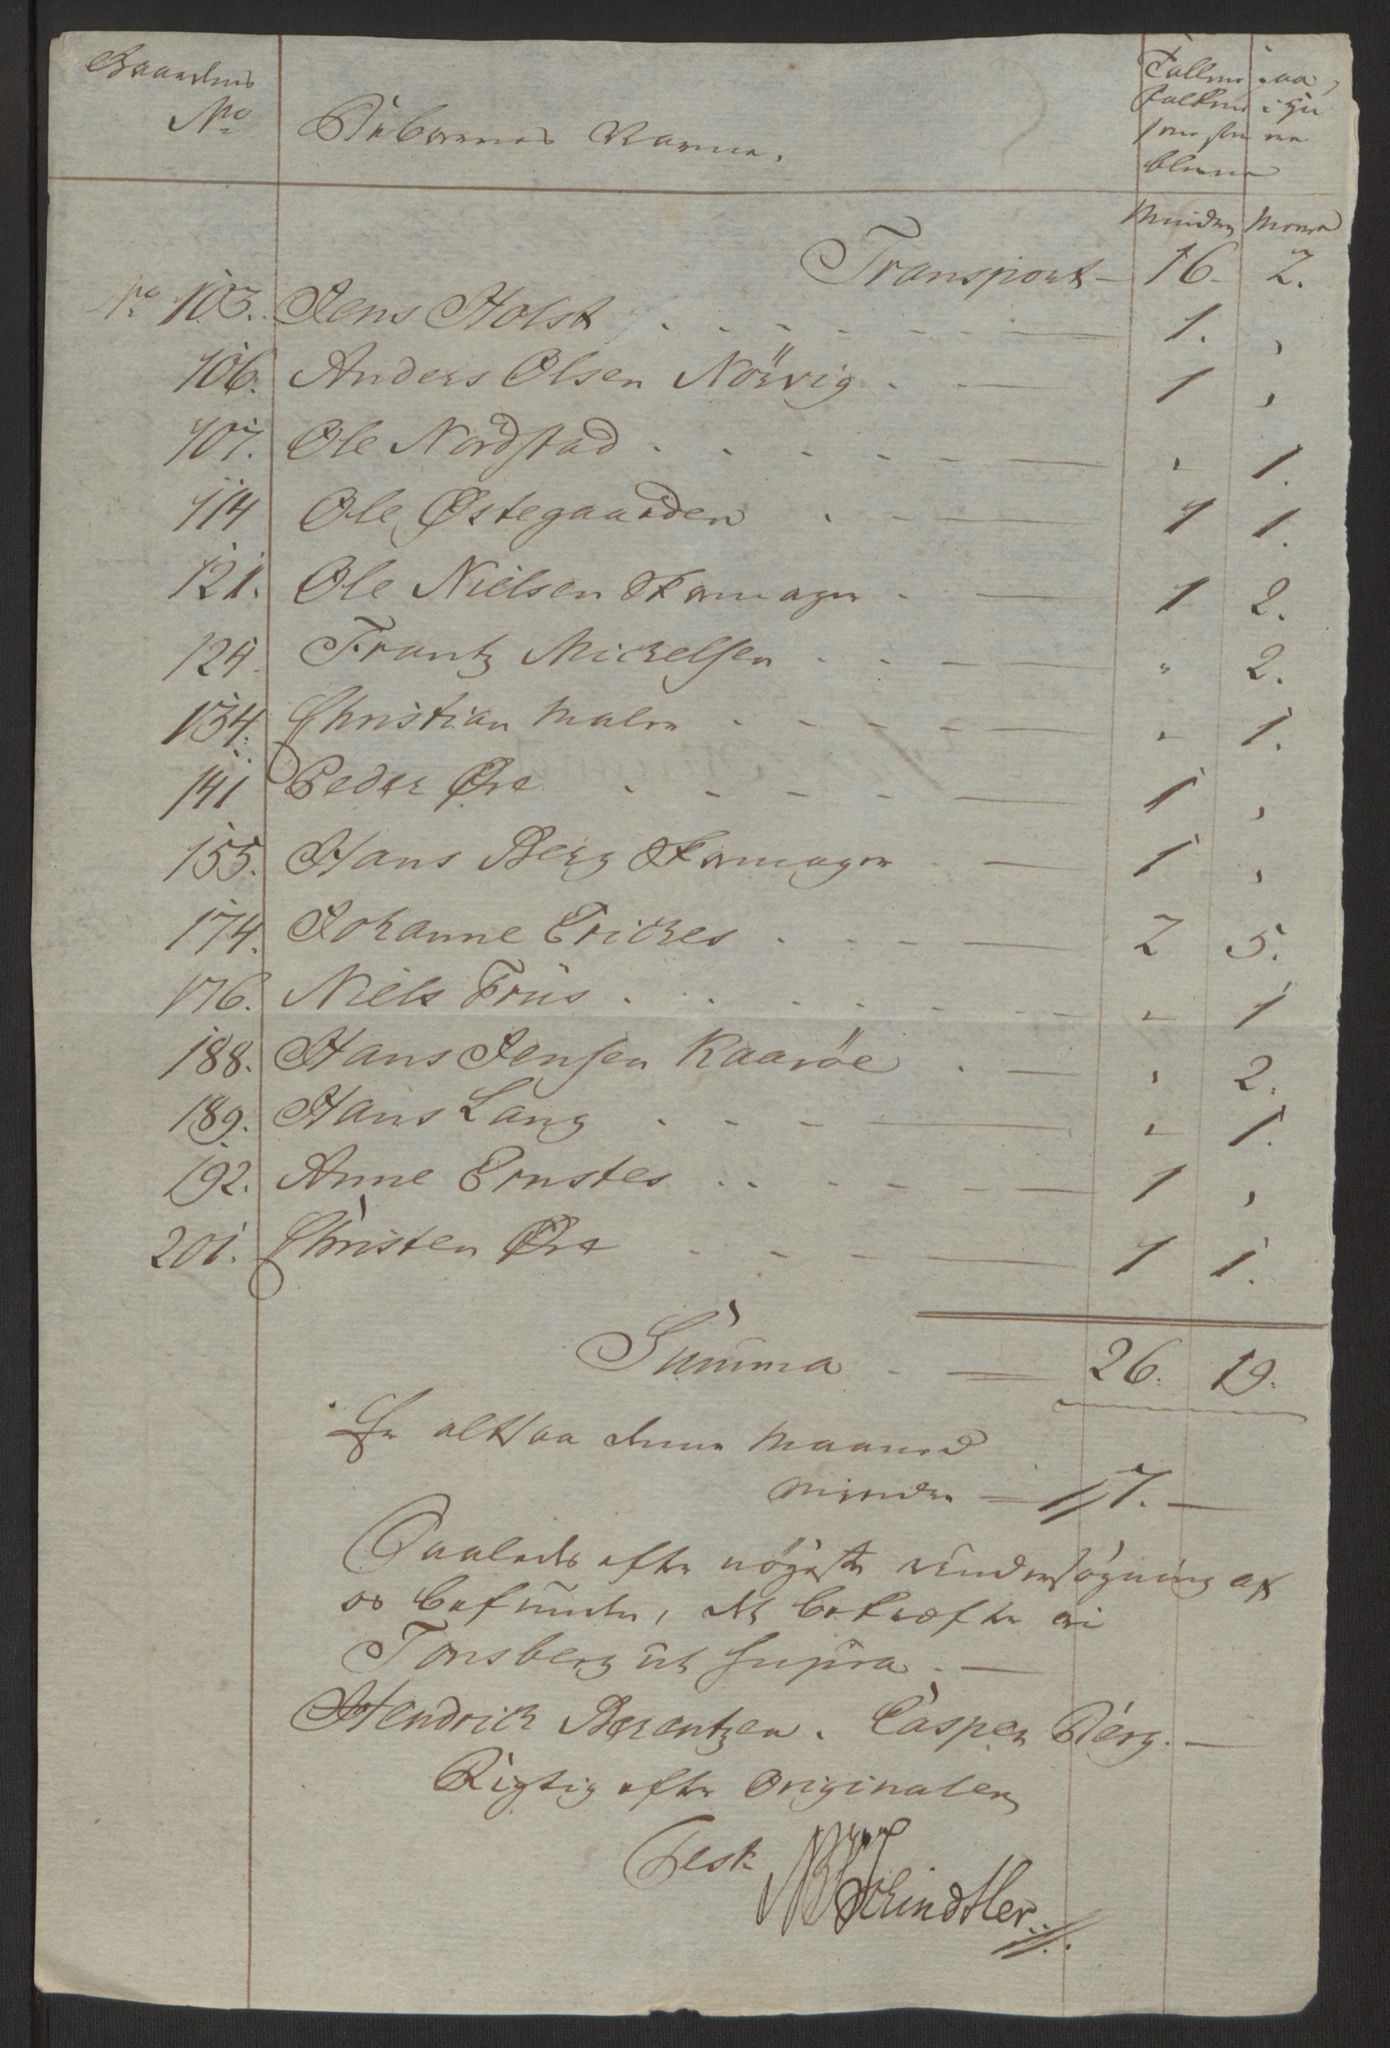 Gaardens
No
Beboernes Navne.
Tallene paa
Folkene i Hu
sene ere
blevne
Mindre Meere
Transport — 16. 2.
No 103. Jens Holst . . . . — 1. ,
106. Anders Olsen Nörvig . — 1 ,
107. Ole Nordstad . . . . — " 1.
114 Ole Østegaarden . . — 1 1.
121. Ole Nielsen Skomager . — 1 2.
124. Frantz Michelsen . . . — " 2.
134. Christian Maler . . . . — " 1.
141 Peder Øre . . . . — 1 ,
155. Hans Berg Skomager . — 1 ,
174. Johanne Eriches . . . — 2 5.
176. Niels Friis . . . . . — " 1
188. Hans Jensen Kaaröe . — , 2.
189. Hans Lang . . . — " 1.
192. Anne Ernstes . . . . — 1 ,
201. Christen Øre . . . — 1 1.
Summa . — 26. 19.
Er altsaa denne Maaned
mindre — 7. —
Saaledes efter nöjeste undersögning af
os befunden, det bekræfter vi
Tonsberg ut supra. —
Hendrich Berentzen. Casper Berg. —
Rigtig efter Originalen
Test.
Schindtler